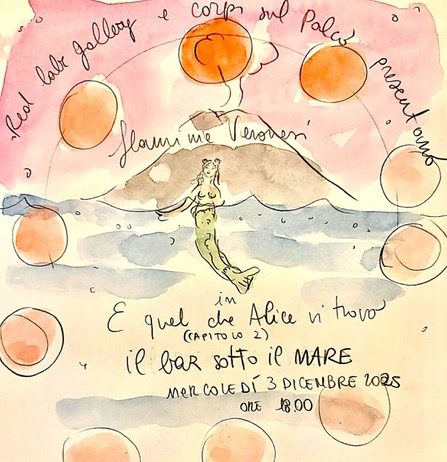 Red lab gallery e corpi sul Palco presentano
Flaminia Veronesi
in
E quel che Alice vi trovò
(CAPITOLO 2)
il bar sotto il MARE
MERCOLEDÍ 3 DICEMBRE 2025
ORE 18.00